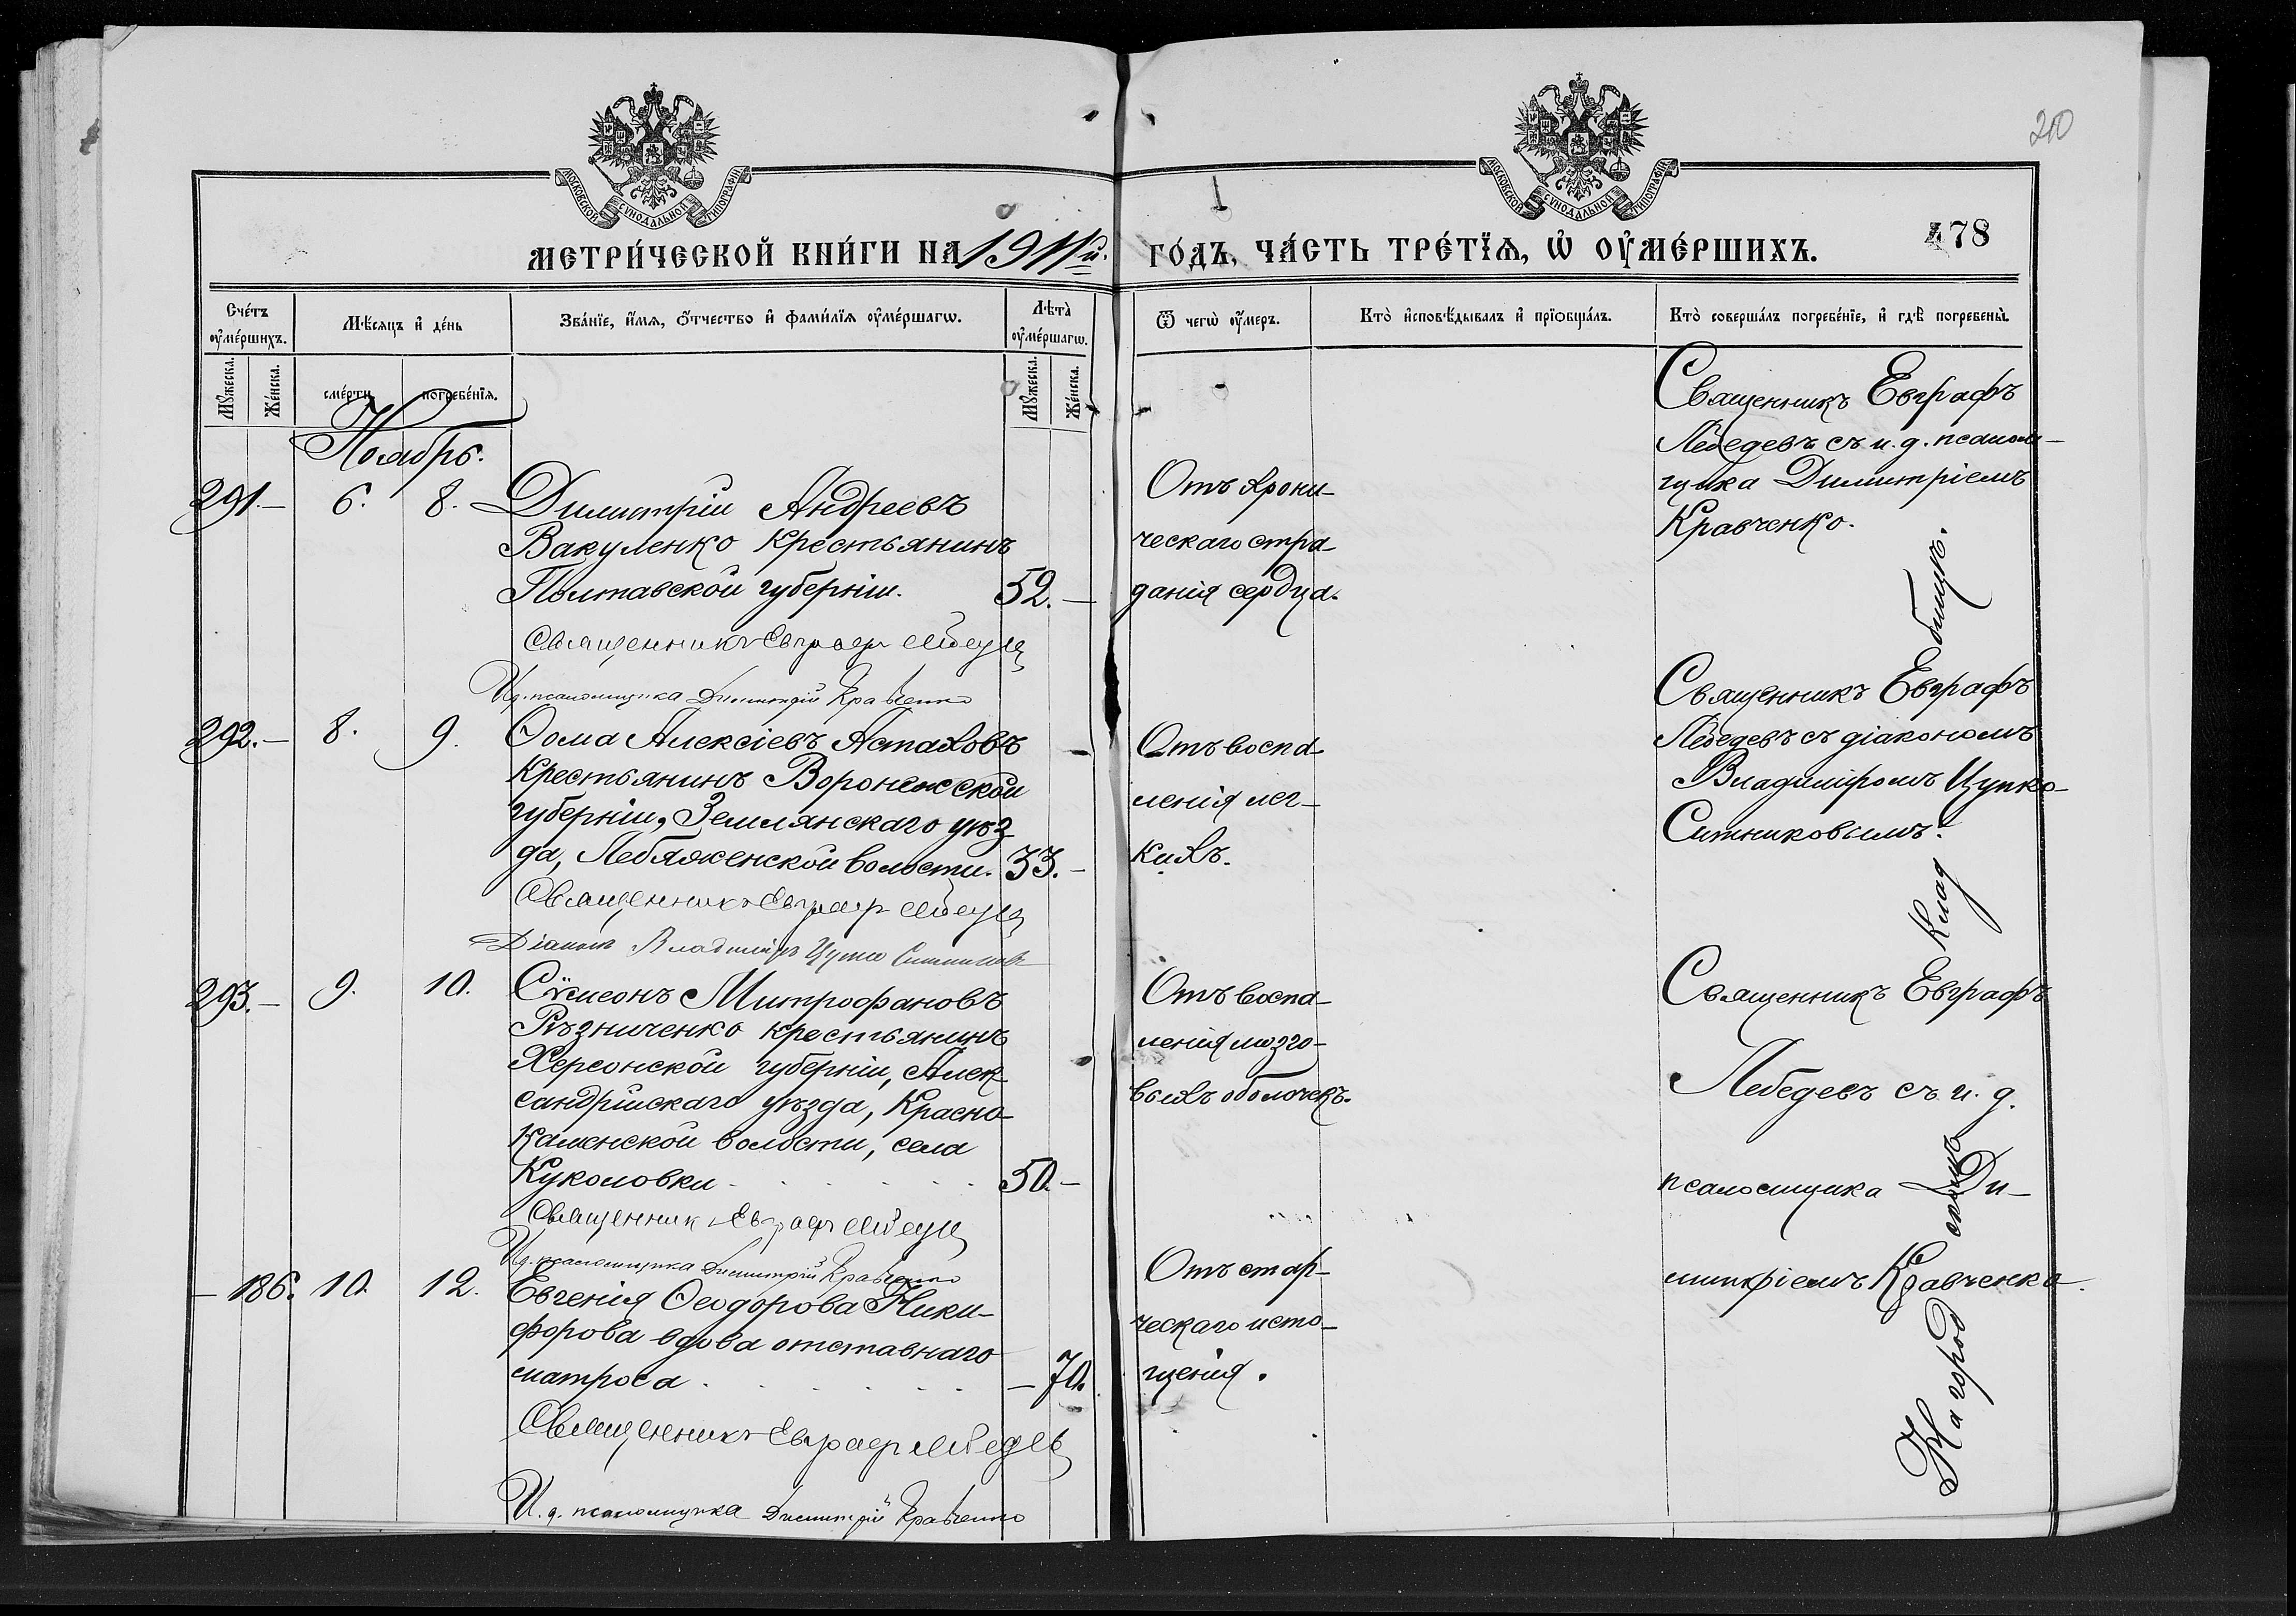 МОСКОВСКОЙ СУНОДАЛЬНОЙ ТИПОГРАФІИ
МОСКОВСКОЙ СУНОДАЛЬНОЙ ТИПОГРАФІИ
210
МЕТРИ́ЧЕСКОЙ КНИ́ГИ НА 1911й. ГО́ДЪ, ЧА́СТЬ ТРЕ́ТЇѦ, Ѡ҆ ОУ҆МЕ́РШИХЪ.
478
Сче́тъ оу҆ме́ршихъ.
Мѣ́сѧцъ и҆ де́нь
Зва́нїе, и҆́мѧ, ѻ҆́тчество и҆ фами́лїѧ оу҆ме́ршагѡ.
Лѣ́та̀ оу҆ме́ршагѡ.
Ѿ чегѡ̀ оу҆́меръ.
Кто̀ и҆сповѣ́дывалъ и҆ прїѡбща́лъ.
Кто̀ соверша́лъ погребе́нїе, и҆ гдѣ̀ погребены̀.
Мꙋ́жеска.
Же́нска.
сме́рти
погребе́нїѧ.
Мꙋ́жеска.
Же́нска.
Ноябрь.
291.— 6. 8. Димитрій Андреевъ
Вакуленко крестьянинъ
Полтавской губерніи. 52.—
Священникъ Евграфъ Лебедевъ
И.д. псаломщика Димитрій Кравченко
Отъ хрони-
ческаго стра-
данія сердца.
Священникъ Евграфъ
Лебедевъ съ и. д. псалом-
щика Димитріемъ
Кравченко.
292.— 8. 9. Ѳома Алексіевъ Астаховъ
крестьянинъ Воронежской
губерніи, Землянскаго уѣз
да, Лебяженской волости. 33.—
Священникъ Евграфъ Лебедевъ
Діаконъ Владиміръ Цупко Ситниковъ
Отъ воспа-
ленія лег-
кихъ.
Священникъ Евграфъ
Лебедевъ съ діакономъ
Владиміромъ Цупко-
Ситниковымъ.
293.— 9. 10. Сѵмеонъ Митрофановъ
Рѣзниченко крестьянинъ
Херсонской губерніи, Алек-
сандрійскаго уѣзда, Красно-
каменской волости, села
Куколовки. 50.—
Священникъ Евграфъ Лебедевъ
И.д. псаломщика Димитрій Кравченко
Отъ воспа-
ленія мозго-
выхъ оболочекъ.
Священникъ Евграфъ
Лебедевъ съ и. д.
псаломщика Ди-
митріемъ Кравченко.
— 186. 10. 12. Евгенія Ѳеодорова Ники-
форова вдова отставнаго
матроса. —70.
Священникъ Евграфъ Лебедевъ
И. д. псаломщика Димитрій Кравченко
Отъ стар-
ческаго исто-
щенія.
На город скомъ клад бищѣ.